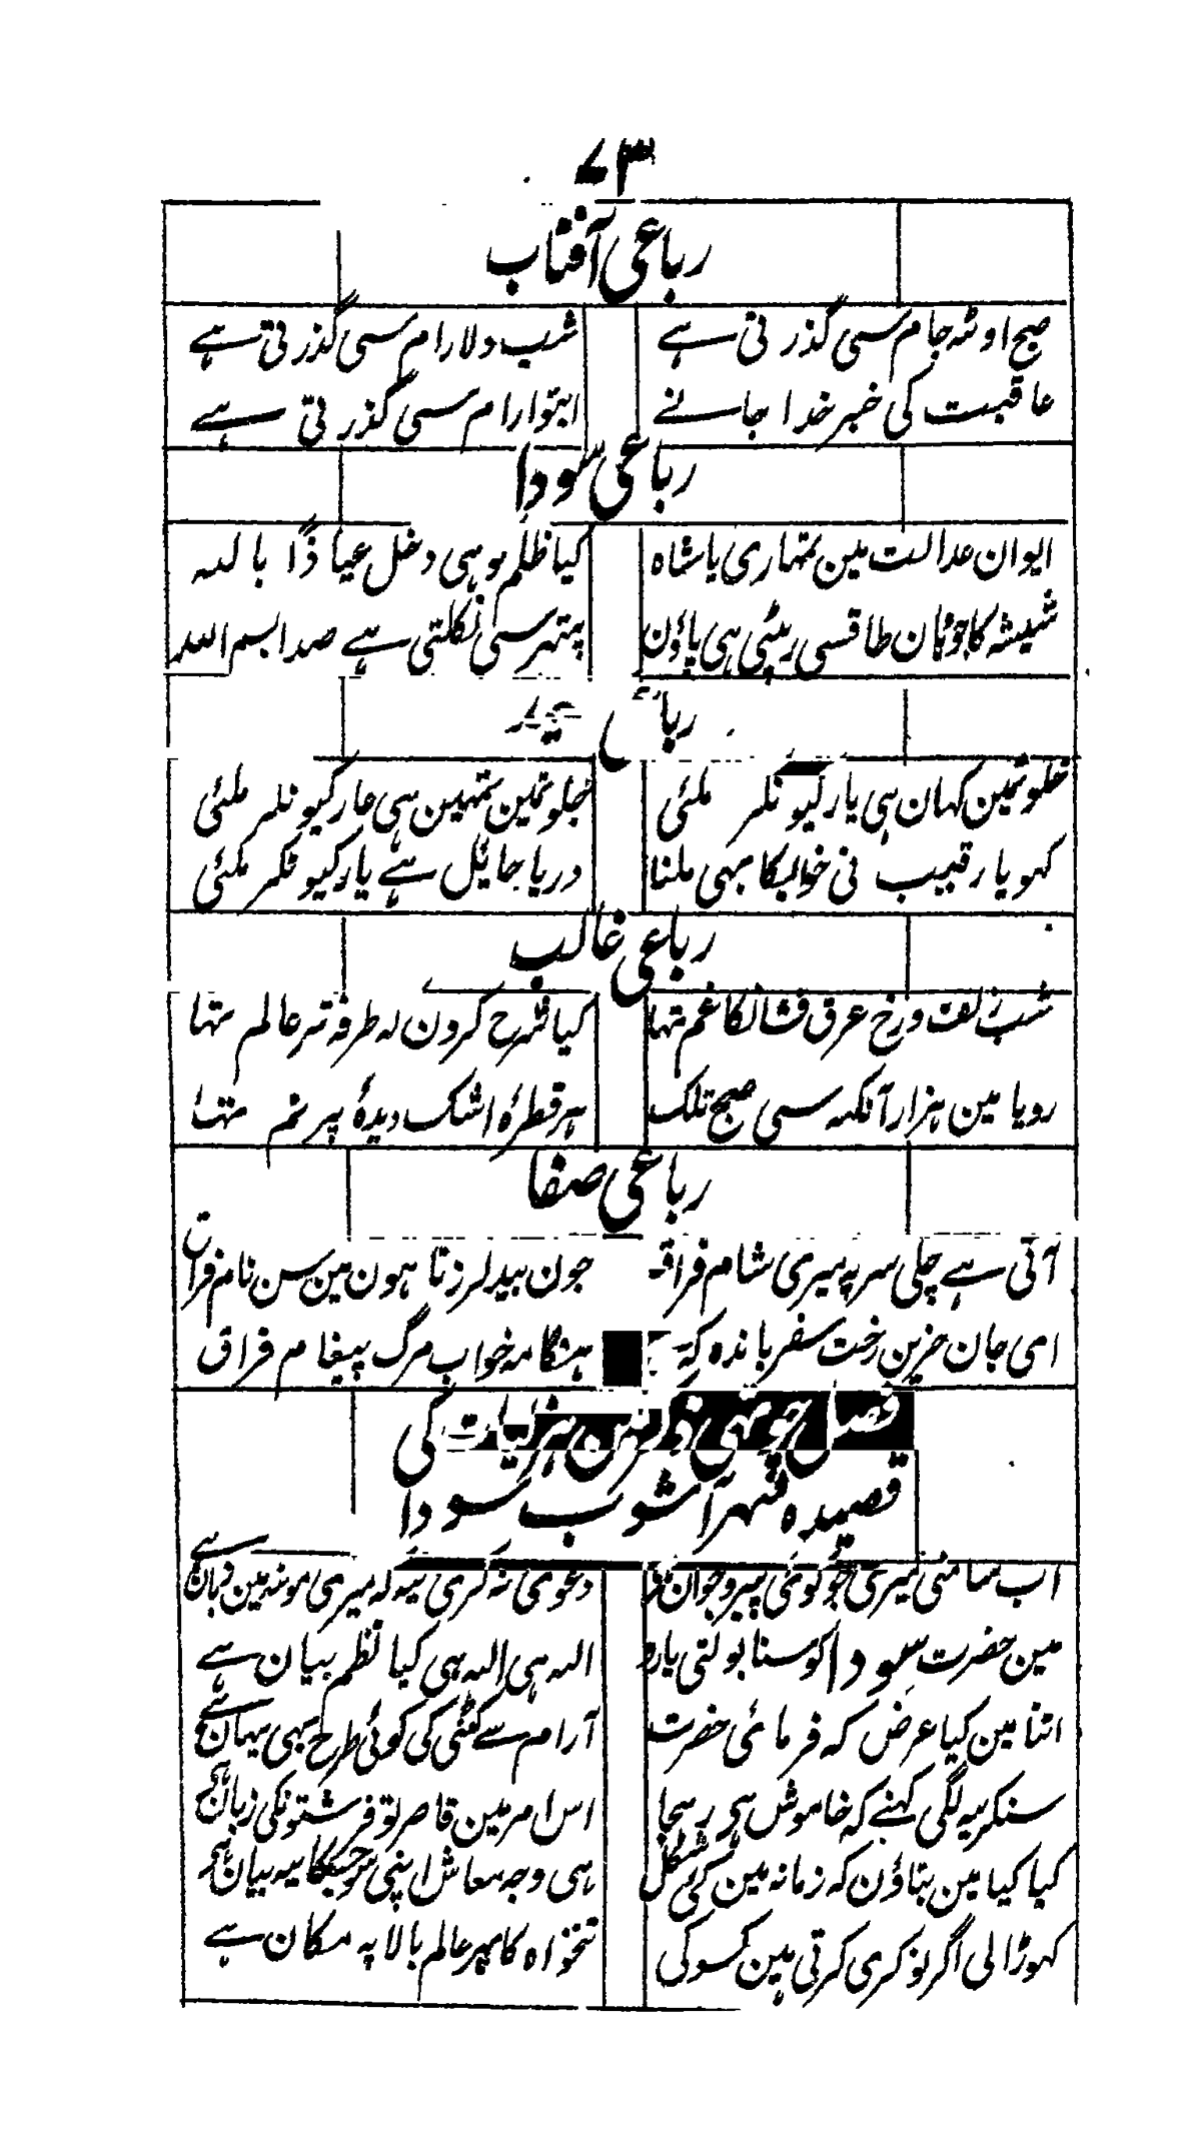 ٧٣
رباعی آفتاب
صبح اوٹہ جام سی گذرتی ہے شب دلارام سی گذرتی ہے
عاقبت کی خبر خدا جانے ابتو ارام سی گذرتی ہے
رباعی سودا
ایوان عدالت مین تمہاری یا شاہ کیا ظلم ہو ہی دخل عیاذا باللہ
شیشہ کا جو ٹہان طاقسی رپٹی ہی پاؤن پتہر سی نکلتی ہے صدا بسم اللہ
رباعی
خلوتمین کہان ہی یار کیونکر ملئی جلوتمین تمہین ہی عار کیونکر ملئی
کہو یا رقیب نی خوابکا بہی ملنا دریا حائل ہے یار کیونکر ملئی
رباعی غالب
شب زلف ورخ عرق فشانکا غم تہا کیا شرح کرون کہ طرفہ تر عالم تہا
رویا مین ہزار آنکہہ سی صبح تلک ہر قطرۂ اشک دیدۂ پر نم تہا
رباعی صفا
آتی ہے چلی سر پہ میری شام فراق جون بید لرزتا ہون مین سن نام فراق
امی جان حزین رخت سفر باندہ کہ ہنگامہ خواب مرگ پیغام فراق
فصل چوتہی ذکر مین ہزلیات کی
قصیدہ شہر آشوب سودا
اب سامنی میری جو کوئی پیر و جوان دعوی نہ کری یہ کہ میری مونہہ مین زبان ہے
مین حضرت سودا کو سنا بولتی یارو اللہ ہی اللہ ہی کیا نظم بیان ہے
اتنا مین کیا عرض کہ فرمائی حضرت آرام سے کٹنی کی کوئی طرح بہی یہان ہے
سنکر یہ لگی کہنے کہ خاموش ہی رہجا اس امر مین قاصر تو فرشتونکی زبان ہے
کیا کیا مین بتاؤن کہ زمانہ مین کئی شکل ہی وجہ معاش اپنی سو جسکا یہ بیان ہے
گہوڑا لی اگر نوکری کرتی ہین کسو کی تنخواہ کا پہر عالم بالا پہ مکان ہے